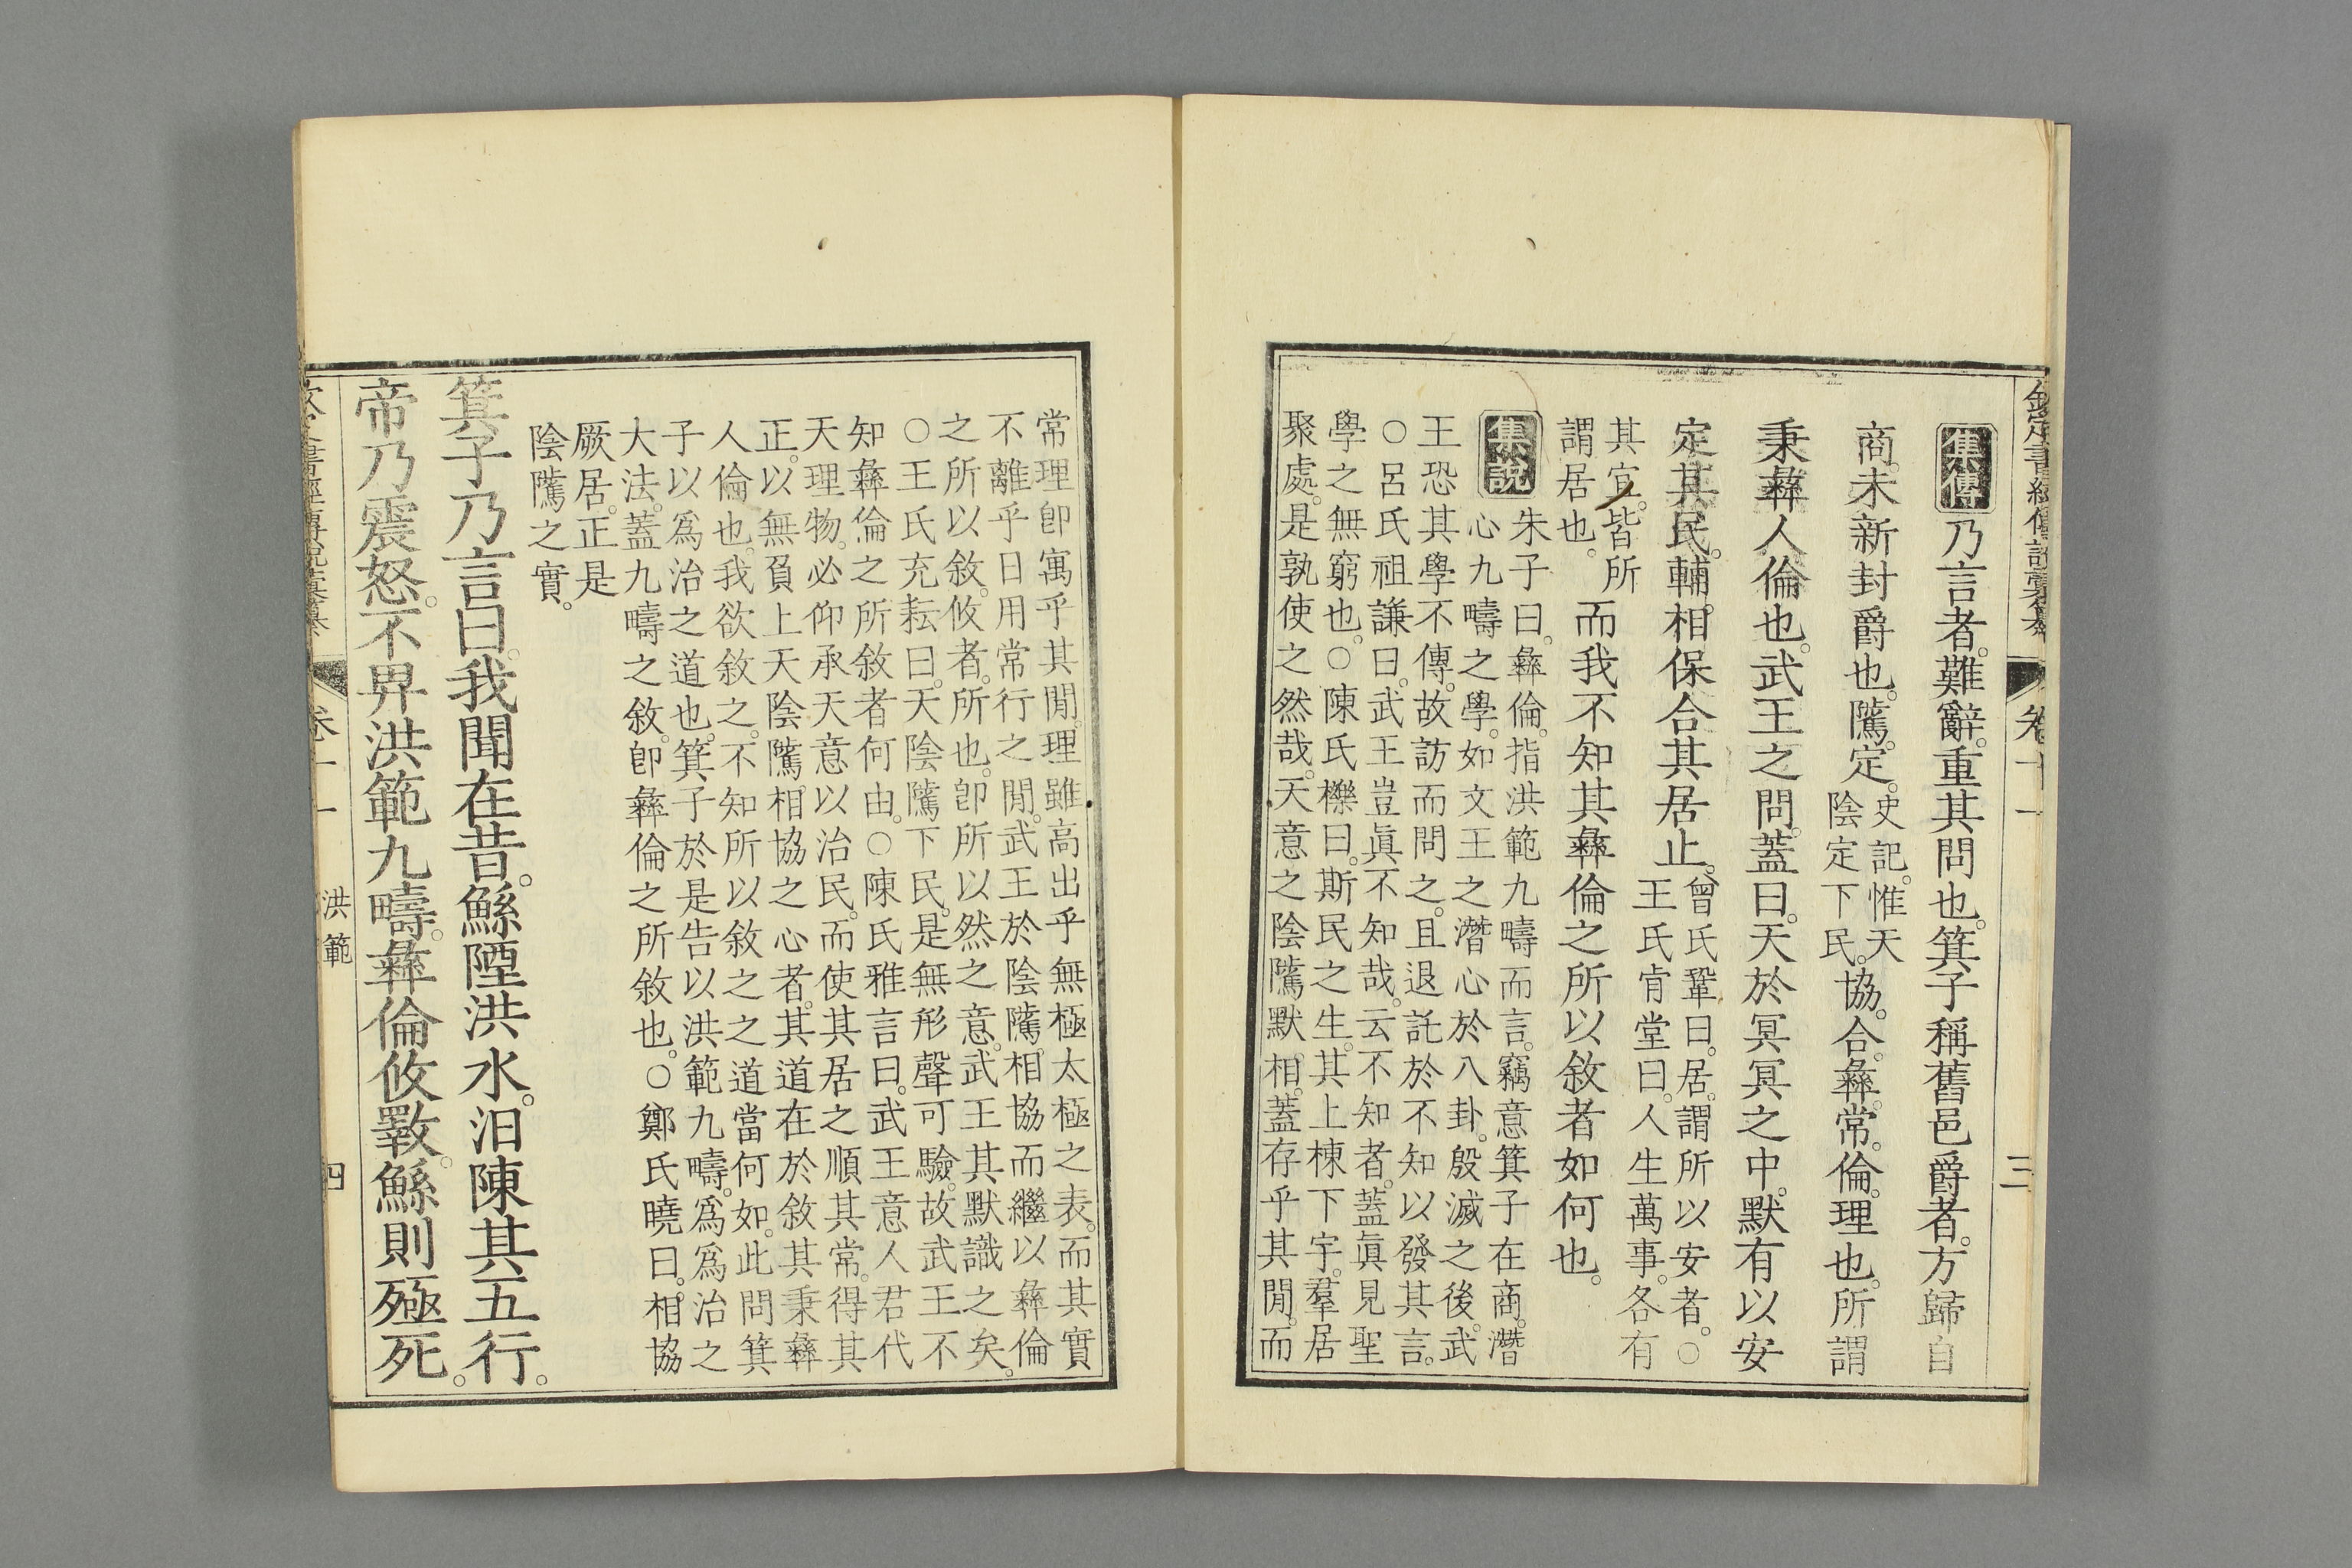 欽定書經傳說彙纂
卷十一
三
集傳
乃言者。難辭。重其問也。箕子稱舊邑爵者。方歸自
商。未新封爵也。隲。定。
史記。惟天
陰定下民。
協。合。彝。常。倫。理也。所謂
秉彝人倫也。武王之問。蓋曰。天於冥冥之中。默有以安
定其民。輔。相保合其居止。
曾氏鞏曰。居。謂所以安者。○
王氏肯堂曰。人生萬事。各有
其宜。皆所
謂居也。
而我不知其彝倫之所以敘者如何也。
集說
朱子曰。彝倫。指洪範九疇而言。竊意箕子在商。潛
心九疇之學。如文王之潛心於八卦。殷滅之後。武
王恐其學不傳。故訪而問之。且退託於不知以發其言。
○呂氏祖謙曰。武王豈眞不知哉。云不知者。蓋眞見聖
學之無窮也。○陳氏櫟曰。斯民之生。其上棟下宇。羣居
聚處。是孰使之然哉。天意之陰隲默相。蓋存乎其閒。而
常理卽寓乎其閒。理雖高出乎無極太極之表。而其實
不離乎日用常行之閒。武王於陰隲。相協而繼以彝倫
之所以敘。攸者。所也。卽所以然之意。武王其默識之矣。
○王氏充耘曰。天陰隲下民。是無形聲可驗。故武王不
知彝倫之所敘者何由。○陳氏雅言曰。武王意人君代
天理物。必仰承天意以治民。而使其居之順其常。得其
正。以無負上天陰隲。相協之心者。其道在於敘其秉彝
人倫也。我欲敘之。不知所以敘之之道當何如。此問箕
子以爲治之道也。箕子於是告以洪範九疇。爲爲治之
大法。蓋九疇之敘。卽彝倫之所敘也。○鄭氏曉曰。相協
厥居。正是
陰隲之實。
箕子乃言曰。我聞在昔。鯀陻洪水。汨陳其五行。
帝乃震怒。不畀洪範九疇。彝倫攸斁。鯀則殛死。
卷十一
洪範
四